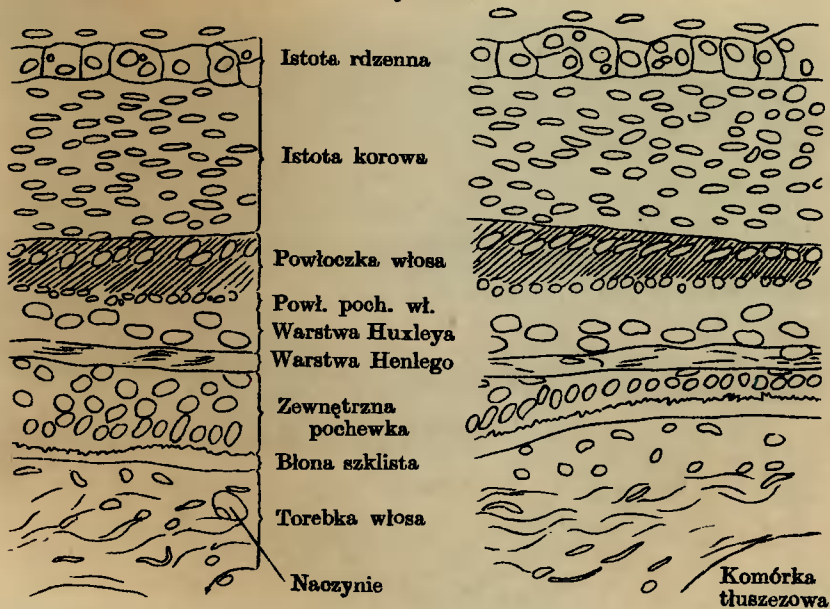 Istota rdzenna
Istota korowa
Powłoczka włosa
Powł. poch. wł.
Warstwa Huxleya
Warstwa Henlego
Zewnętrzna
pochewka
Błona szklista
Torebka włosa
Naczynie
Komórka
tłuszezowa